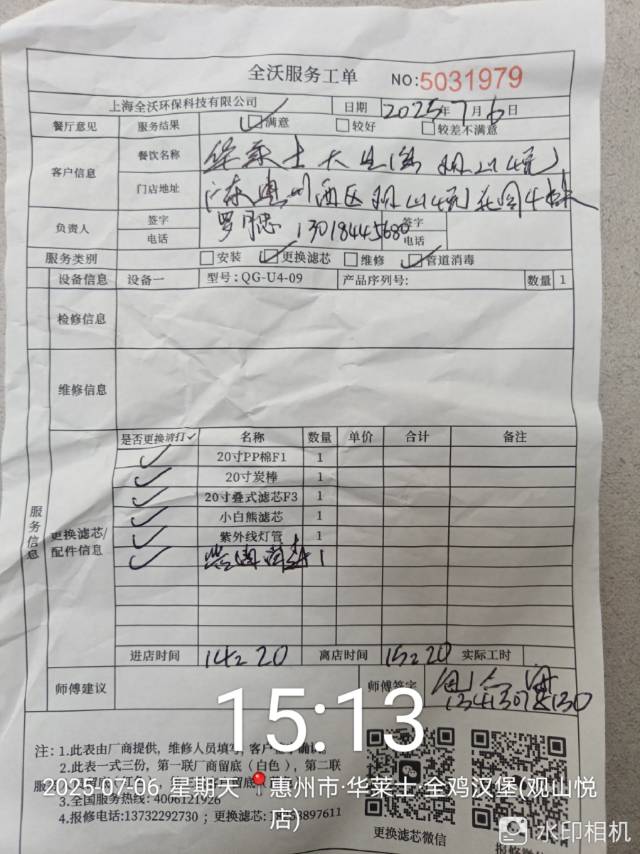 全沃服务工单 NO:5031979
上海全沃环保科技有限公司 日期 2025年7月6日
餐厅意见 服务结果 ☑满意 □较好 □较差不满意
客户信息 餐饮名称 华莱士
门店地址 广东惠州
负责人 签字 签字
电话 13018445680 电话
服务类别 □安装 ☑更换滤芯 □维修 ☑管道消毒
设备信息 设备一 型号:QG-U4-09 产品序列号: 数量 1
检修信息
维修信息
服务信息
更换滤芯/配件信息
是否更换请打✓ 名称 数量 单价 合计 备注
✓ 20寸PP棉F1 1
✓ 20寸炭棒 1
✓ 20寸叠式滤芯F3 1
✓ 小白熊滤芯 1
✓ 紫外线灯管 1
✓ 1
进店时间 14:20 离店时间 15:20 实际工时
师傅建议 师傅签字
15:13
注: 1.此表由厂商提供，维修人员填写，客户
2.此表一式三份，第一联厂商留底（白色），第二联
2025-07-06 星期天 惠州市·华莱士·全鸡汉堡(观山悦店)
3.全国服务热线: 4006121926
4.报修电话:13732292730 ; 更换滤芯:
更换滤芯微信
水印相机